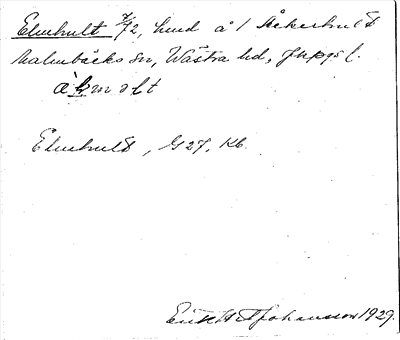 Elmhult 7/12, hemd å 1 Åkerhult
Malmbäcks sn, Västra hd, Jkpgs l.
æ`l̥məlt
Elmhult, G27. Kb.
Erik H Johansson 1929.